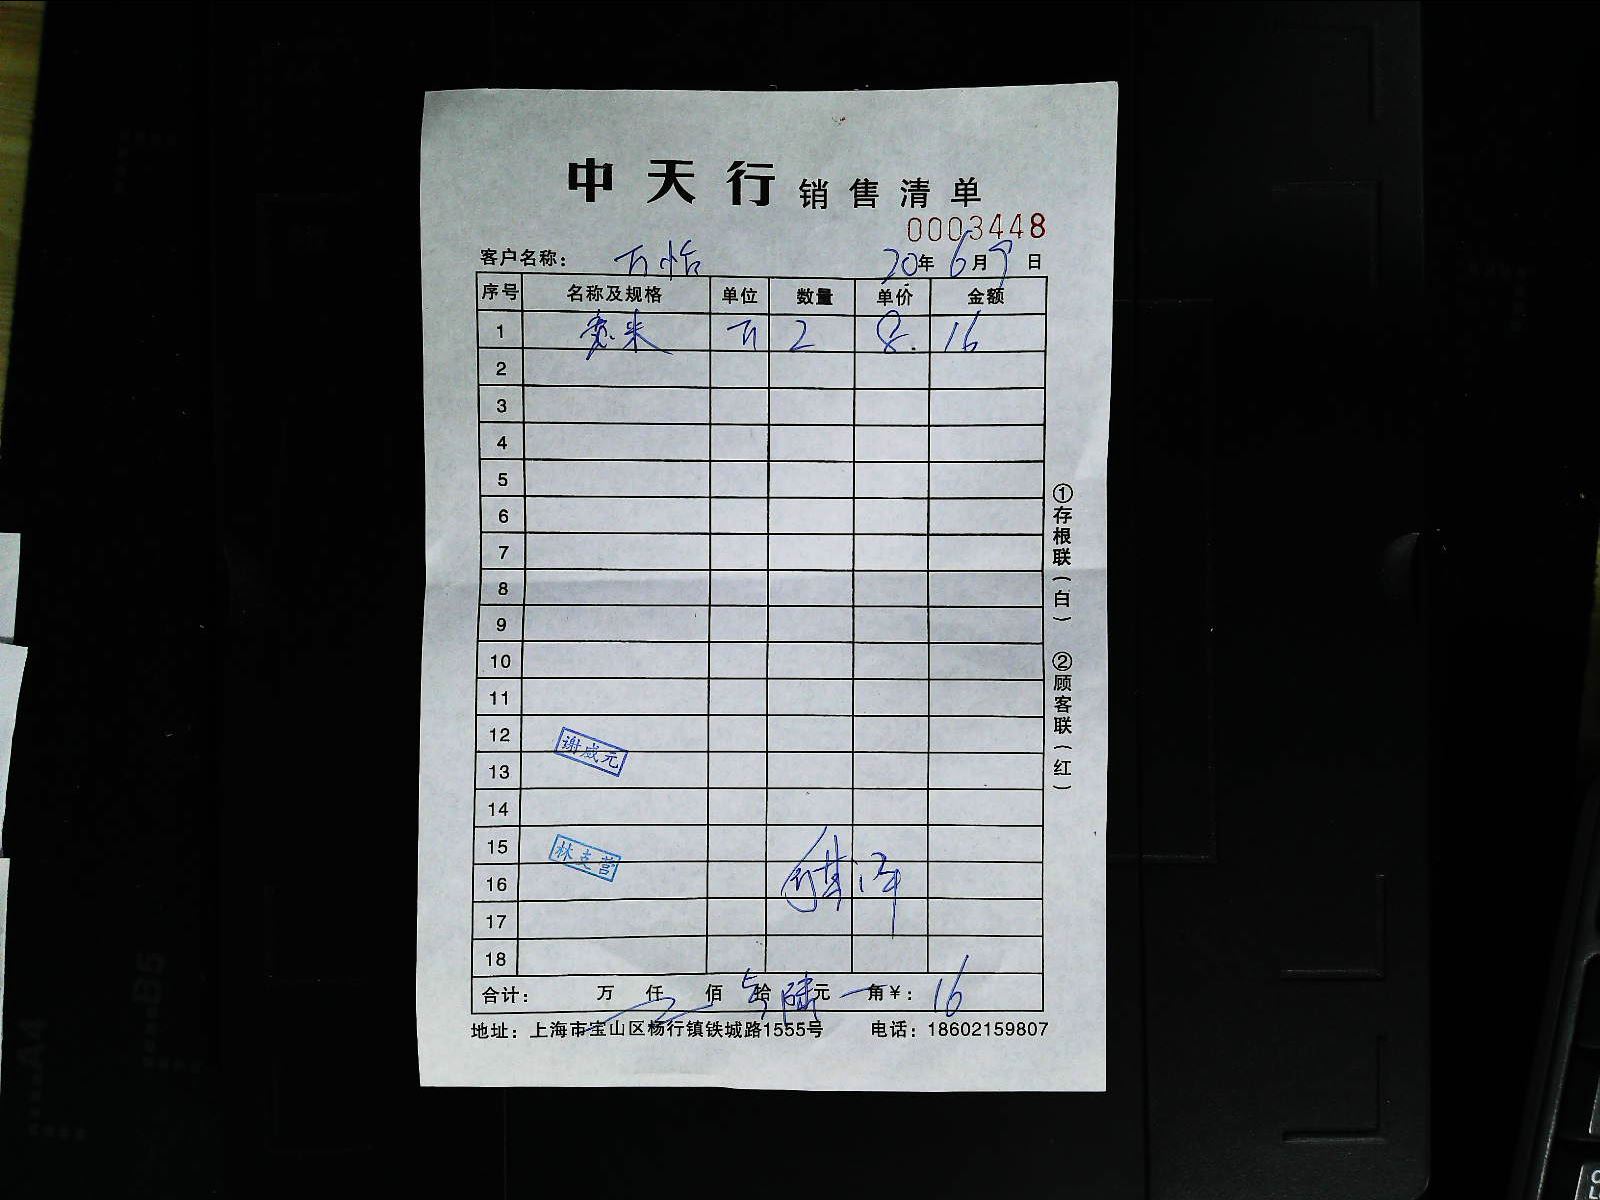 中天行 销售清单
0003448
客户名称： 万怡 20年6月9日
序号 名称及规格 单位 数量 单价 金额
1 米 2 8. 16
2
3
4
5
6
7
8
9
10
11
12
谢威元
13
14
15
林支营
16
17
18
合计： 万 仟 佰 拾 陆 元 角 ¥： 16
地址：上海市宝山区杨行镇铁城路1555号 电话：18602159807
①存根联（白） ②顾客联（红）
A4
B5